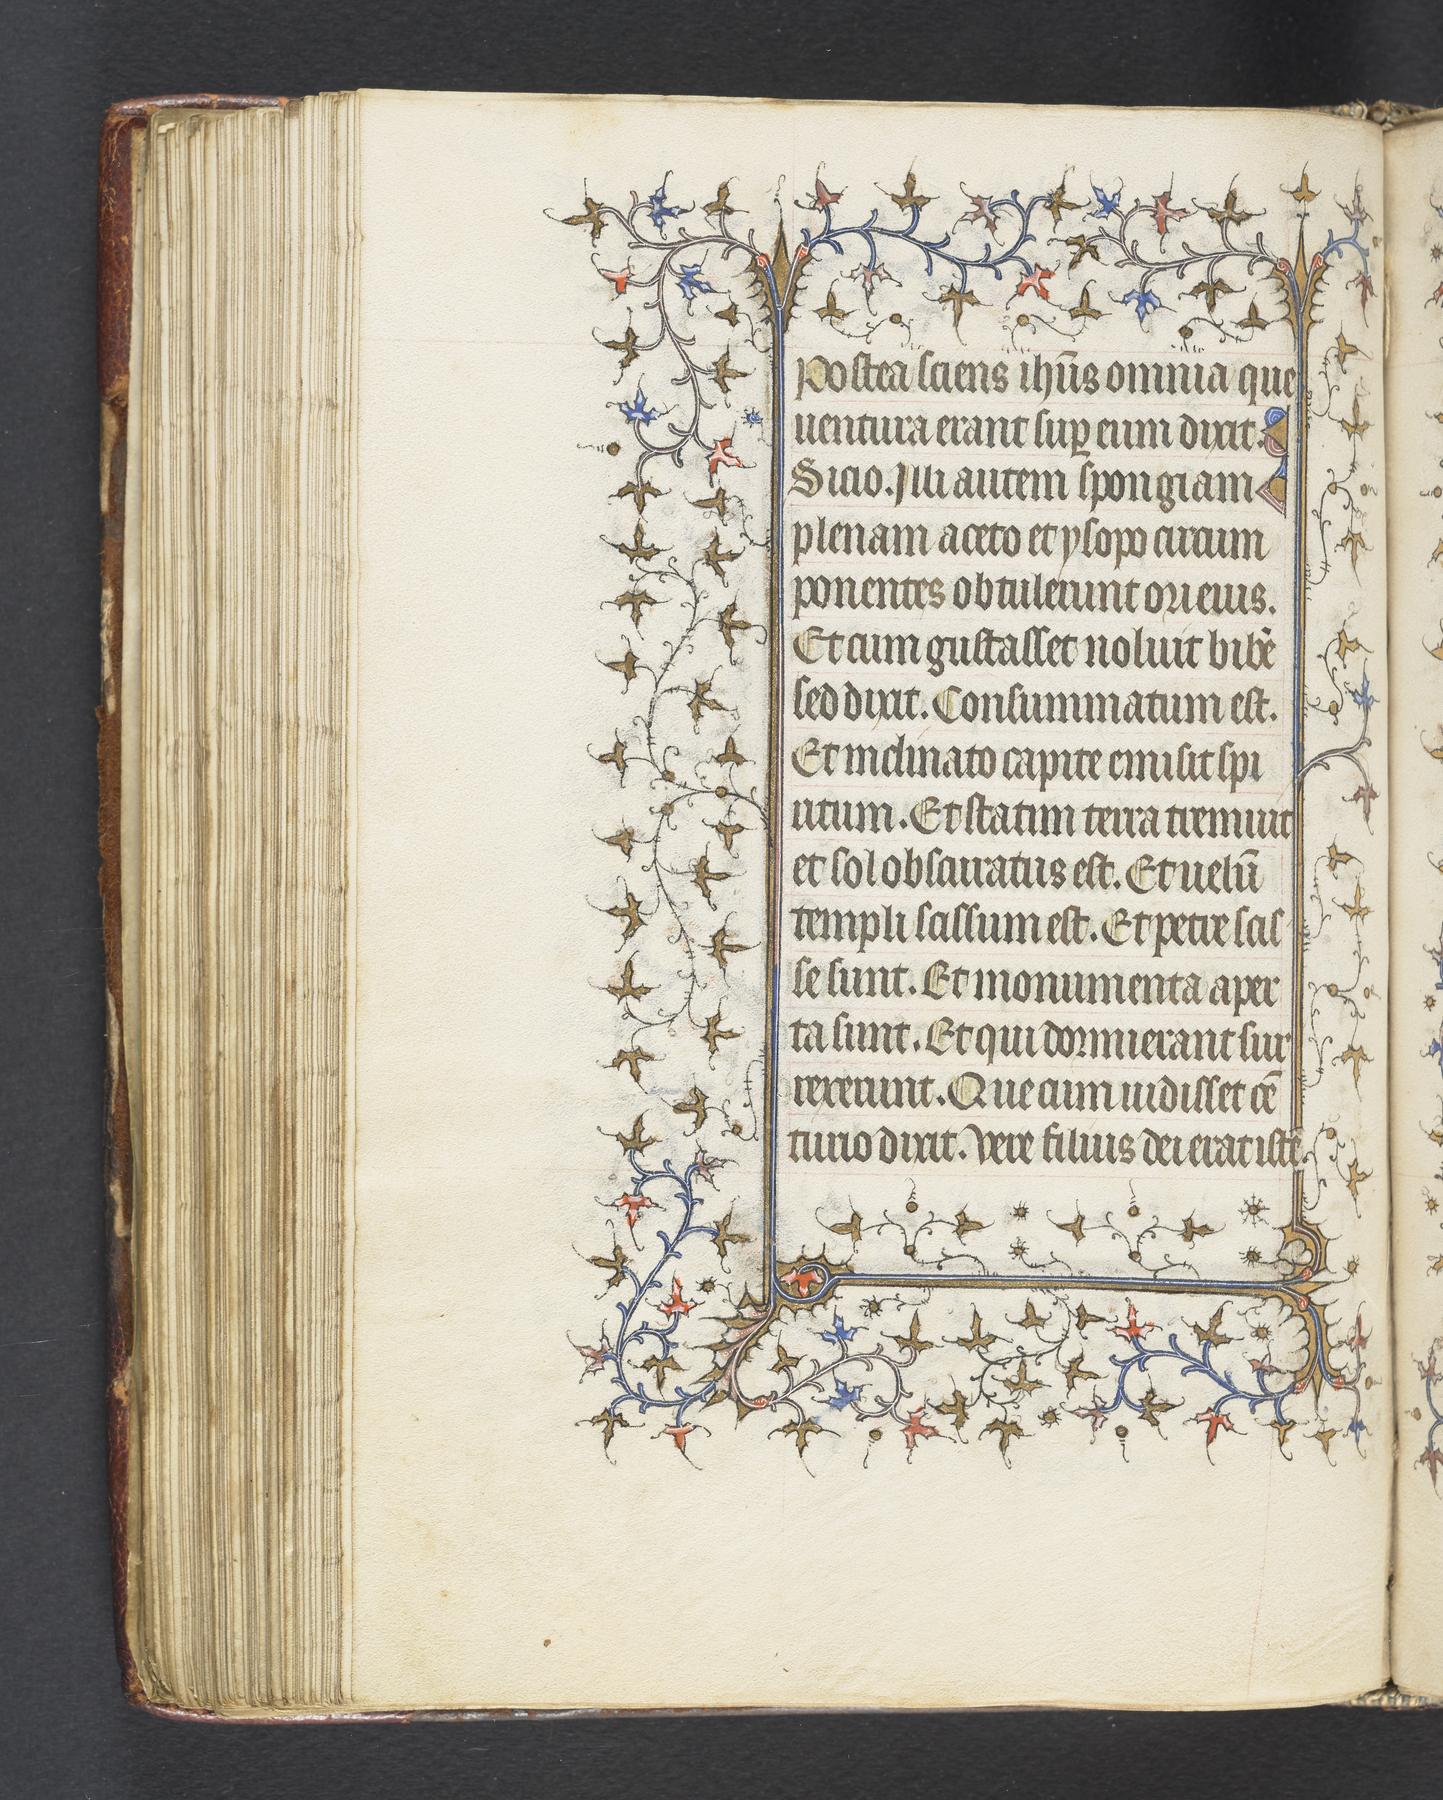 Postea sciens ihūs omnia que
uentura erant suꝑ eum dixit.
Sicio. Illi autem spongiam
plenam aceto et ysopo circum
ponentes obtulerunt ori eius.
Et cum gustasset noluit bibē
sed dixit. Consummatum est.
Et inclinato capite emisit spi
ritum. Et statim terra tremuit
et sol obscuratus est. Et uelū
templi scissum est. Et petre scis
se sunt. Et monumenta aper
ta sunt. Et qui dormierant sur
rexerunt. Que cum uidisset cē
turio dixit. Vere filius dei erat iste.